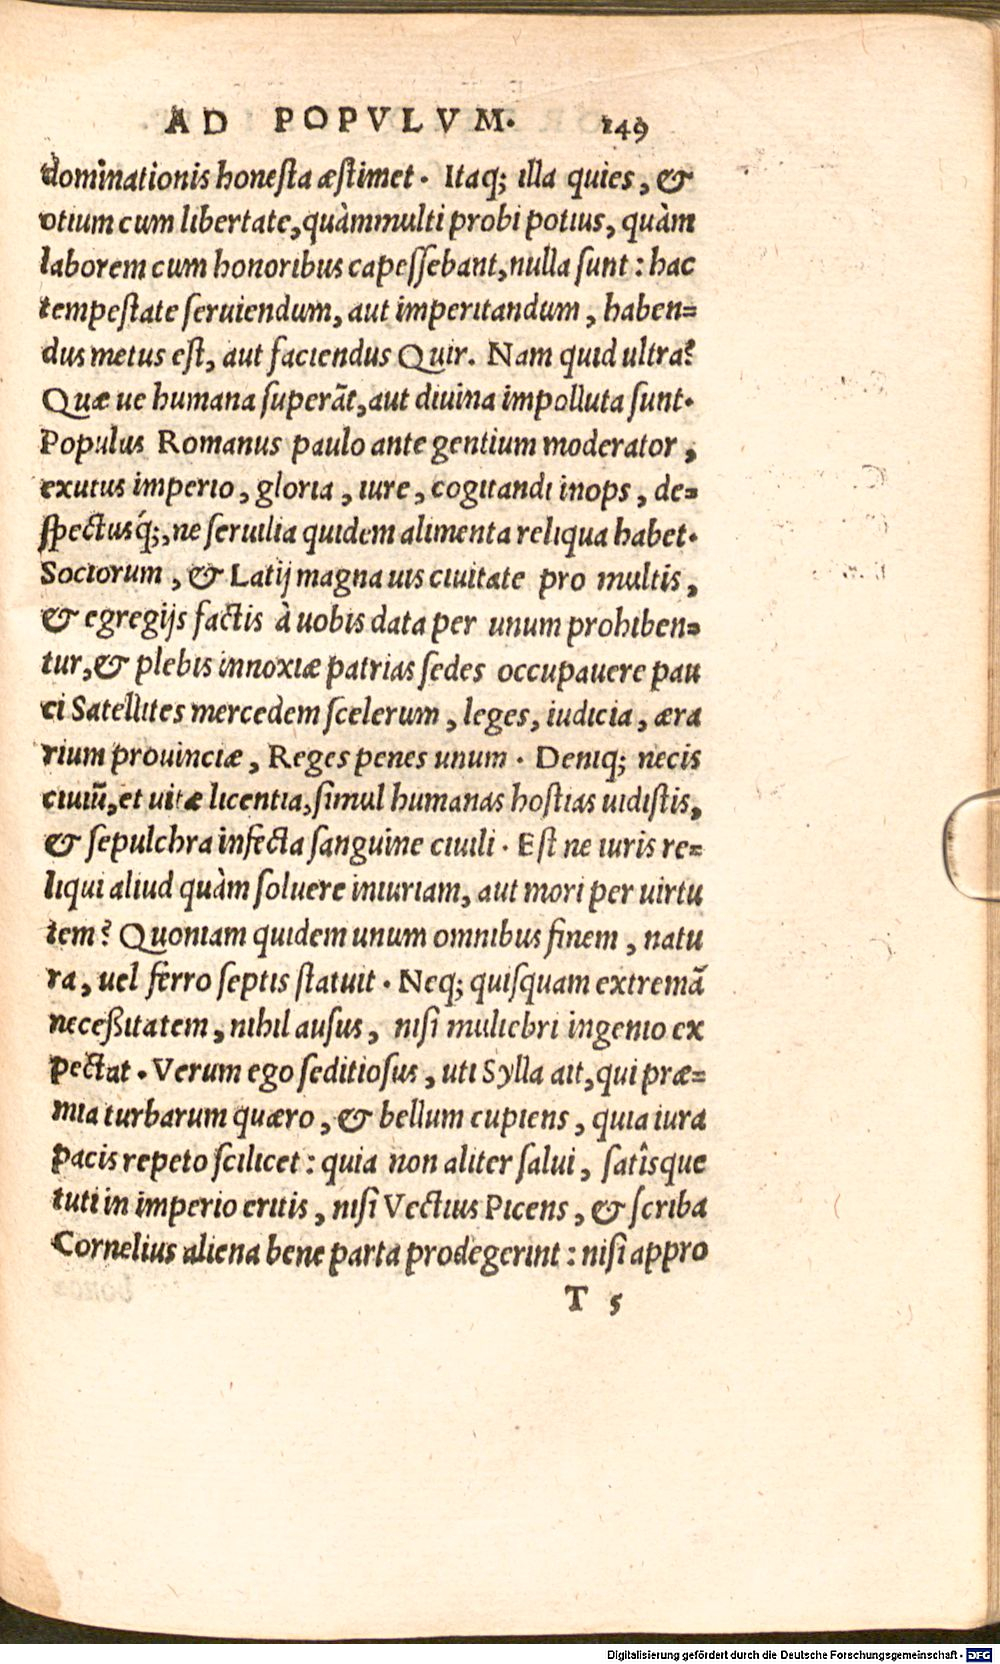 AD POPVLVM. 149
dominationis honesta æstimet. Itaq; illa quies, &
otium cum libertate, quàm multi probi potius, quàm
laborem cum honoribus capessebant, nulla sunt: hac
tempestate seruiendum, aut imperitandum, haben=
dus metus est, aut faciendus Quir. Nam quid ultra?
Quæ ue humana superãt, aut diuina impolluta sunt.
Populus Romanus paulo ante gentium moderator,
exutus imperio, gloria, iure, cogitandi inops, de=
spectusq́;, ne seruilia quidem alimenta reliqua habet.
Sociorum, & Latij magna uis ciuitate pro multis,
& egregijs factis à uobis data per unum prohiben=
tur, & plebis innoxiæ patrias sedes occupauere pau
ci Satellites mercedem scelerum, leges, iudicia, æra
rium prouinciæ, Reges penes unum. Deniq; necis
ciuiũ, et uitæ licentia, simul humanas hostias uidistis,
& sepulchra infecta sanguine ciuili. Est ne iuris re=
liqui aliud quàm soluere iniuriam, aut mori per uirtu
tem? Quoniam quidem unum omnibus finem, natu
ra, uel ferro septis statuit. Neq; quisquam extremã
neceßitatem, nihil ausus, nisi muliebri ingenio ex
pectat. Verum ego seditiosus, uti Sylla ait, qui præ=
mia turbarum quæro, & bellum cupiens, quia iura
pacis repeto scilicet: quia non aliter salui, satîsque
tuti in imperio eritis, nisi Vectius Picens, & scriba
Cornelius aliena bene parta prodegerint: nisi appro
T 5
Digitalisierung gefördert durch die Deutsche Forschungsgemeinschaft - DFG